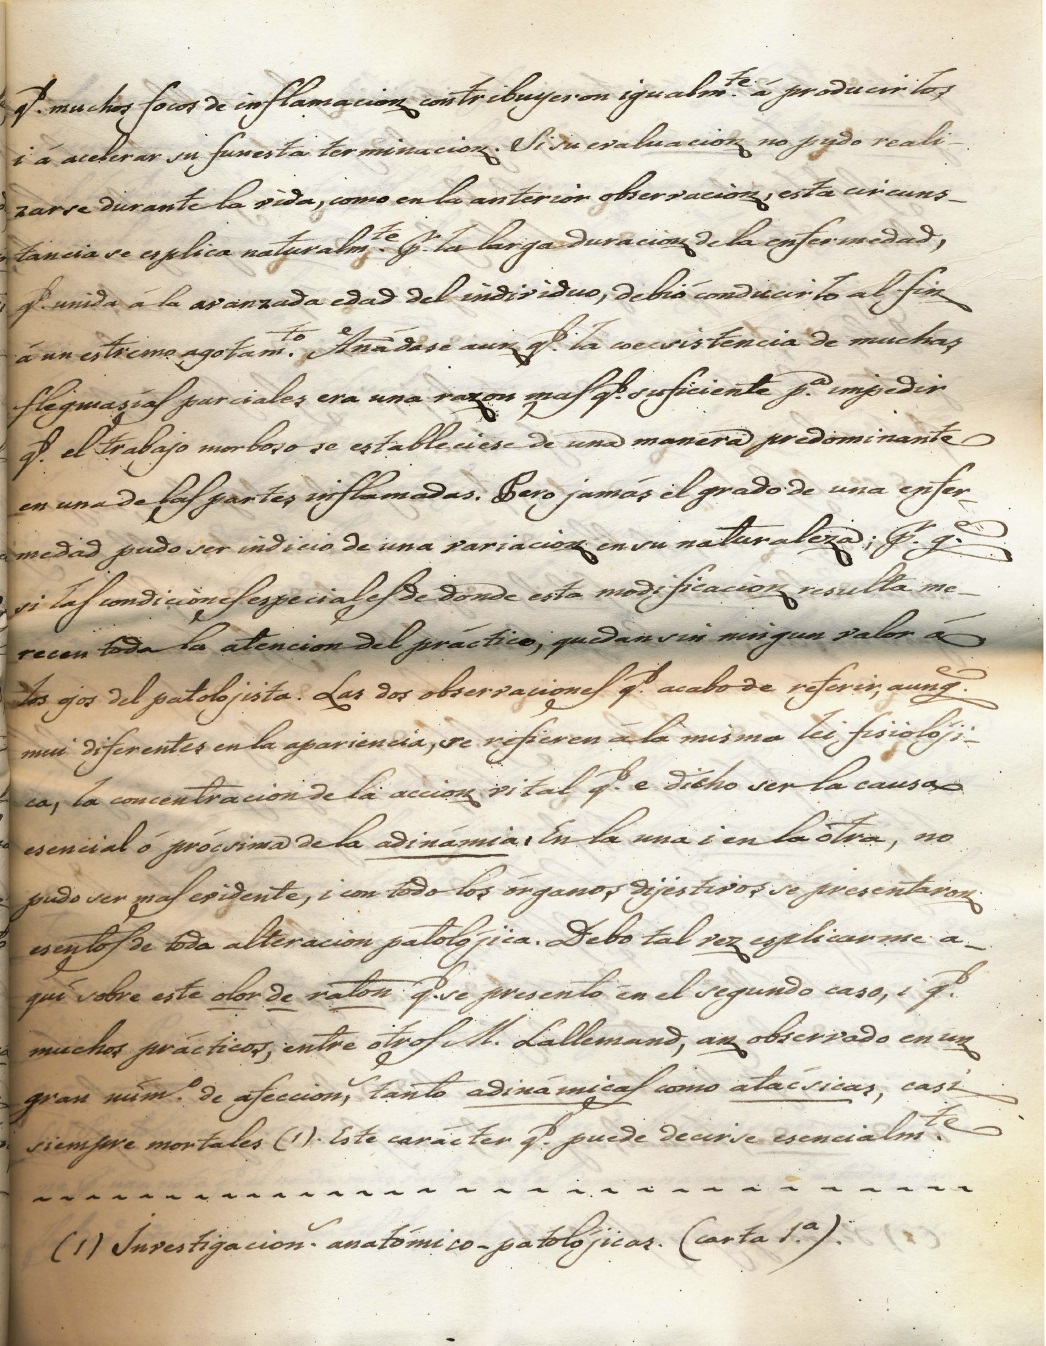 qᵉ. muchos focos de inflamacion contribuyeron igualm.ᵗᵉ á producirlos,
i á acelerar su funesta terminacion. Si su evaluacion no pudo reali-
zarse durante la vida, como en la anterior observacion, esta circuns-
tancia se esplica naturalm.ᵗᵉ pʳ. la larga duracion de la enfermedad,
qᵉ. unida á la avanzada edad del individuo, debió conducirlo al fin
á un estremo agotam.ᵗᵒ. Añádase aun qᵉ. la coecsistencia de muchas
flegmasías parciales era una razon mas qᵉ. suficiente pᵃ. impedir
qᵉ. el trabajo morboso se estableciese de una manera predominante
en una de las partes inflamadas. Pero jamás el grado de una enfer-
medad pudo ser indicio de una variacion en su naturaleza; p. q.ᵉ
si las condiciones especiales de donde esta modificacion resulta me-
recen toda la atencion del práctico, quedan sin ningun valor á
los ojos del patolojista. Las dos observaciones qᵉ. acabo de referir, aunq.ᵉ
mui diferentes en la apariencia, se refieren á la misma lei fisiolóji-
ca, la concentracion de la accion vital qᵉ. e dicho ser la causa
esencial ó prócsima de la adinámia. En la una i en la otra, no
pudo ser mas evidente, i con todo los órganos dijestivos se presentaron
esentos de toda alteracion patolójica. Debo tal vez esplicarme a-
quí sobre este olor de raton qᵉ. se presentó en el segundo caso, i qᵉ.
muchos prácticos, entre otros M. Lallemand, an observado en un
gran núm.º de afeccion.ˢ, tanto adinámicas como atácsicas, casi
siempre mortales (1). Este carácter qᵉ. puede decirse esencialm.ᵗᵉ
(1) Investigacion.ˢ anatómico-patolójicas. (carta 1.ª).